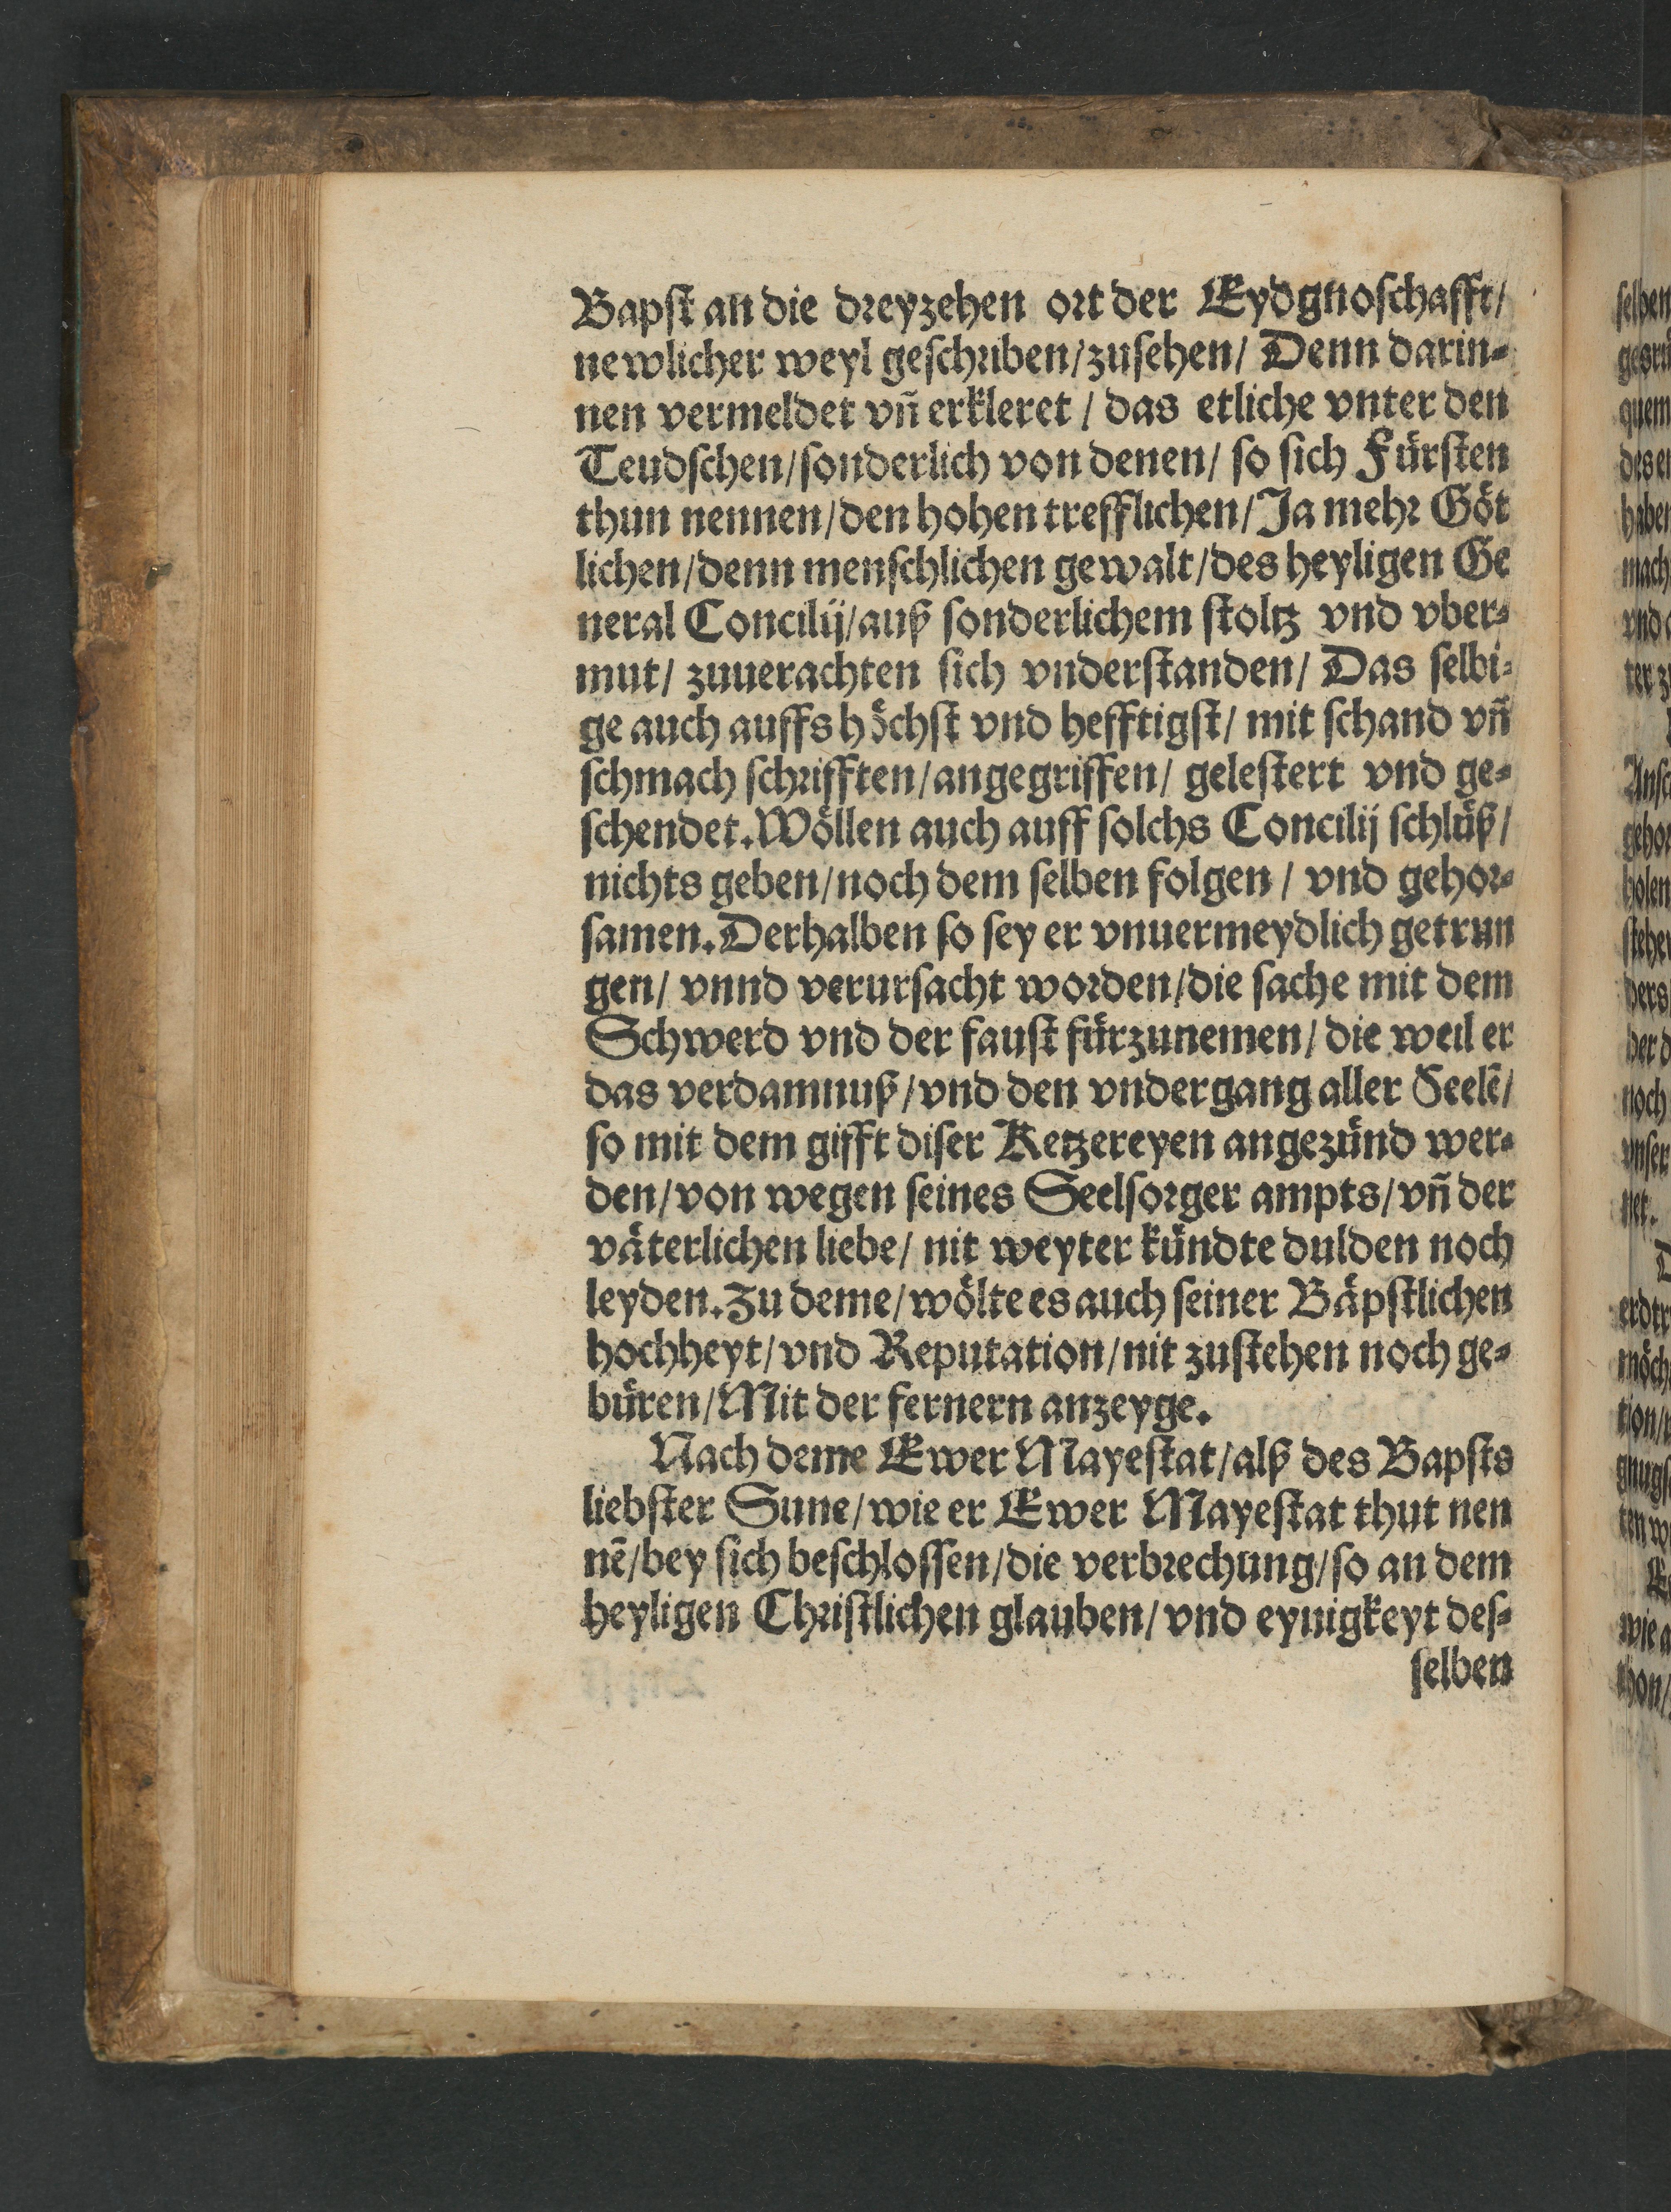 Bapſt an die dreyzehen ort der Eydgnoſchafft/
newlicher weyl geſchriben/zuſehen/ Denn darin⸗
nen vermeldet vñ erkleret / das etliche vnter den
Teudſchen/ſonderlich von denen/ ſo ſich Fürſten
thun nennen/den hohen trefflichen/Ja mehr Göt
lichen/denn menſchlichen gewalt/des heyligen Ge
neral Concilij/auß ſonderlichem ſtoltz vnd vber⸗
mut/ zuuerachten ſich vnderſtanden/ Das ſelbi⸗
ge auch auffs höchſt vnd hefftigſt/ mit ſchand vñ
ſchmach ſchrifften/angegriffen/ geleſtert vnd ge⸗
ſchendet. Wöllen auch auff ſolchs Concilij ſchlüß/
nichts geben/noch dem ſelben folgen / vnd gehor⸗
ſamen. Derhalben ſo ſey er vnuermeydlich getrun
gen/ vnnd verurſacht worden/die ſache mit dem
Schwerd vnd der fauſt fürzunemen/ die weil er
das verdamnuß/vnd den vndergang aller Seelē/
ſo mit dem gifft diſer Ketzereyen angezünd wer⸗
den/von wegen ſeines Seelſorger ampts/vñ der
väterlichen liebe/ nit weyter kündte dulden noch
leyden. Zu deme/wölte es auch ſeiner Bäpſtlichen
hochheyt/vnd Reputation/nit zuſtehen noch ge⸗
büren/Mit der fernern anzeyge.
Nach deme Ewer Mayeſtat/alß des Bapſts
liebſter Sune/wie er Ewer Mayeſtat thut nen
nē/bey ſich beſchloſſen/die verbrechung/ſo an dem
heyligen Chriſtlichen glauben/vnd eynigkeyt deſ⸗
ſelben